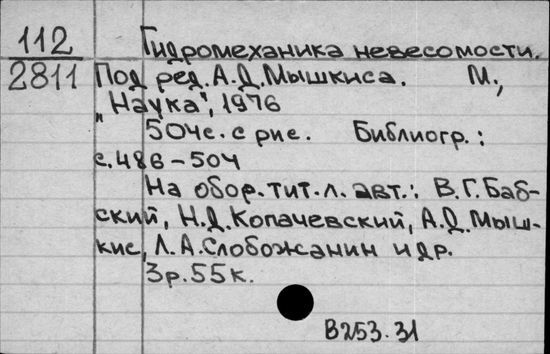 112 Гидромеханика невесомости.
2811 Под ред. А.Д.Мышкиса. М.,
„Наука", 1976
504с. с рис. Библиогр.:
с.486-504
На обор. тит. л. авт.: В.Г.Баб-
ский, Н.Д.Копачевский, А.Д.Мыш-
кис, Л.А.Слобожанин и др.
3р.55к.
В253.31